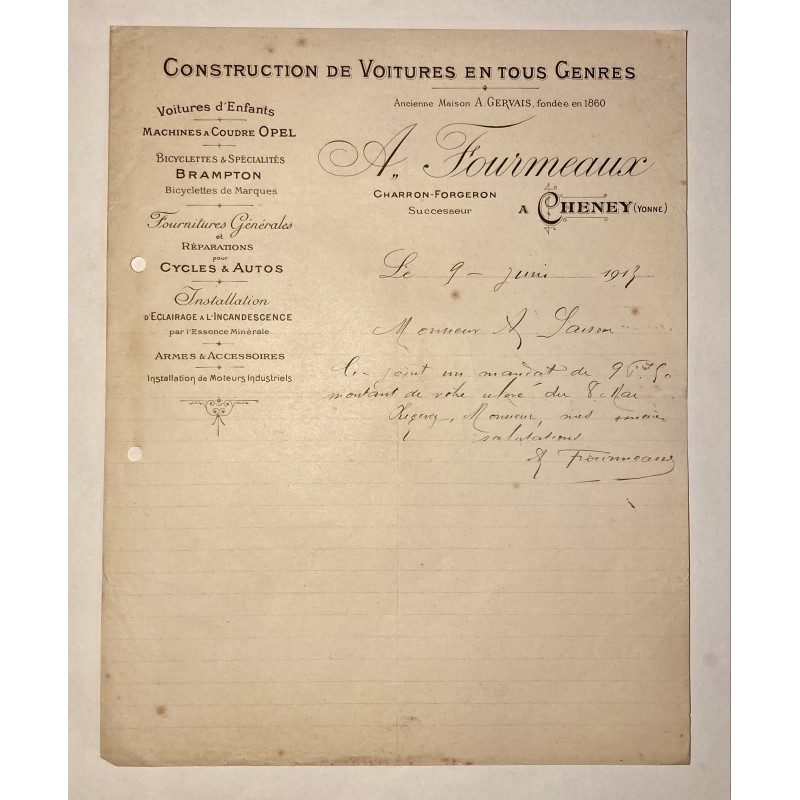 CONSTRUCTION DE VOITURES EN TOUS GENRES
Ancienne Maison A. GERVAIS, fondée en 1860
A. Fourmeaux
CHARRON-FORGERON
Successeur
A CHENEY (YONNE)
Voitures d'Enfants
MACHINES A COUDRE OPEL
BICYCLETTES & SPÉCIALITÉS
BRAMPTON
Bicyclettes de Marques
Fournitures Générales
et
RÉPARATIONS
pour
CYCLES & AUTOS
Installation
D'ECLAIRAGE A L'INCANDESCENCE
par l'Essence Minérale
ARMES & ACCESSOIRES
Installation de Moteurs Industriels
Le 9 - juin 1913
Monsieur A
Ci-joint un mandat de 9
montant de votre relevé du 8 Mai
Recevez, Monsieur, mes
salutations
A Fourmeaux